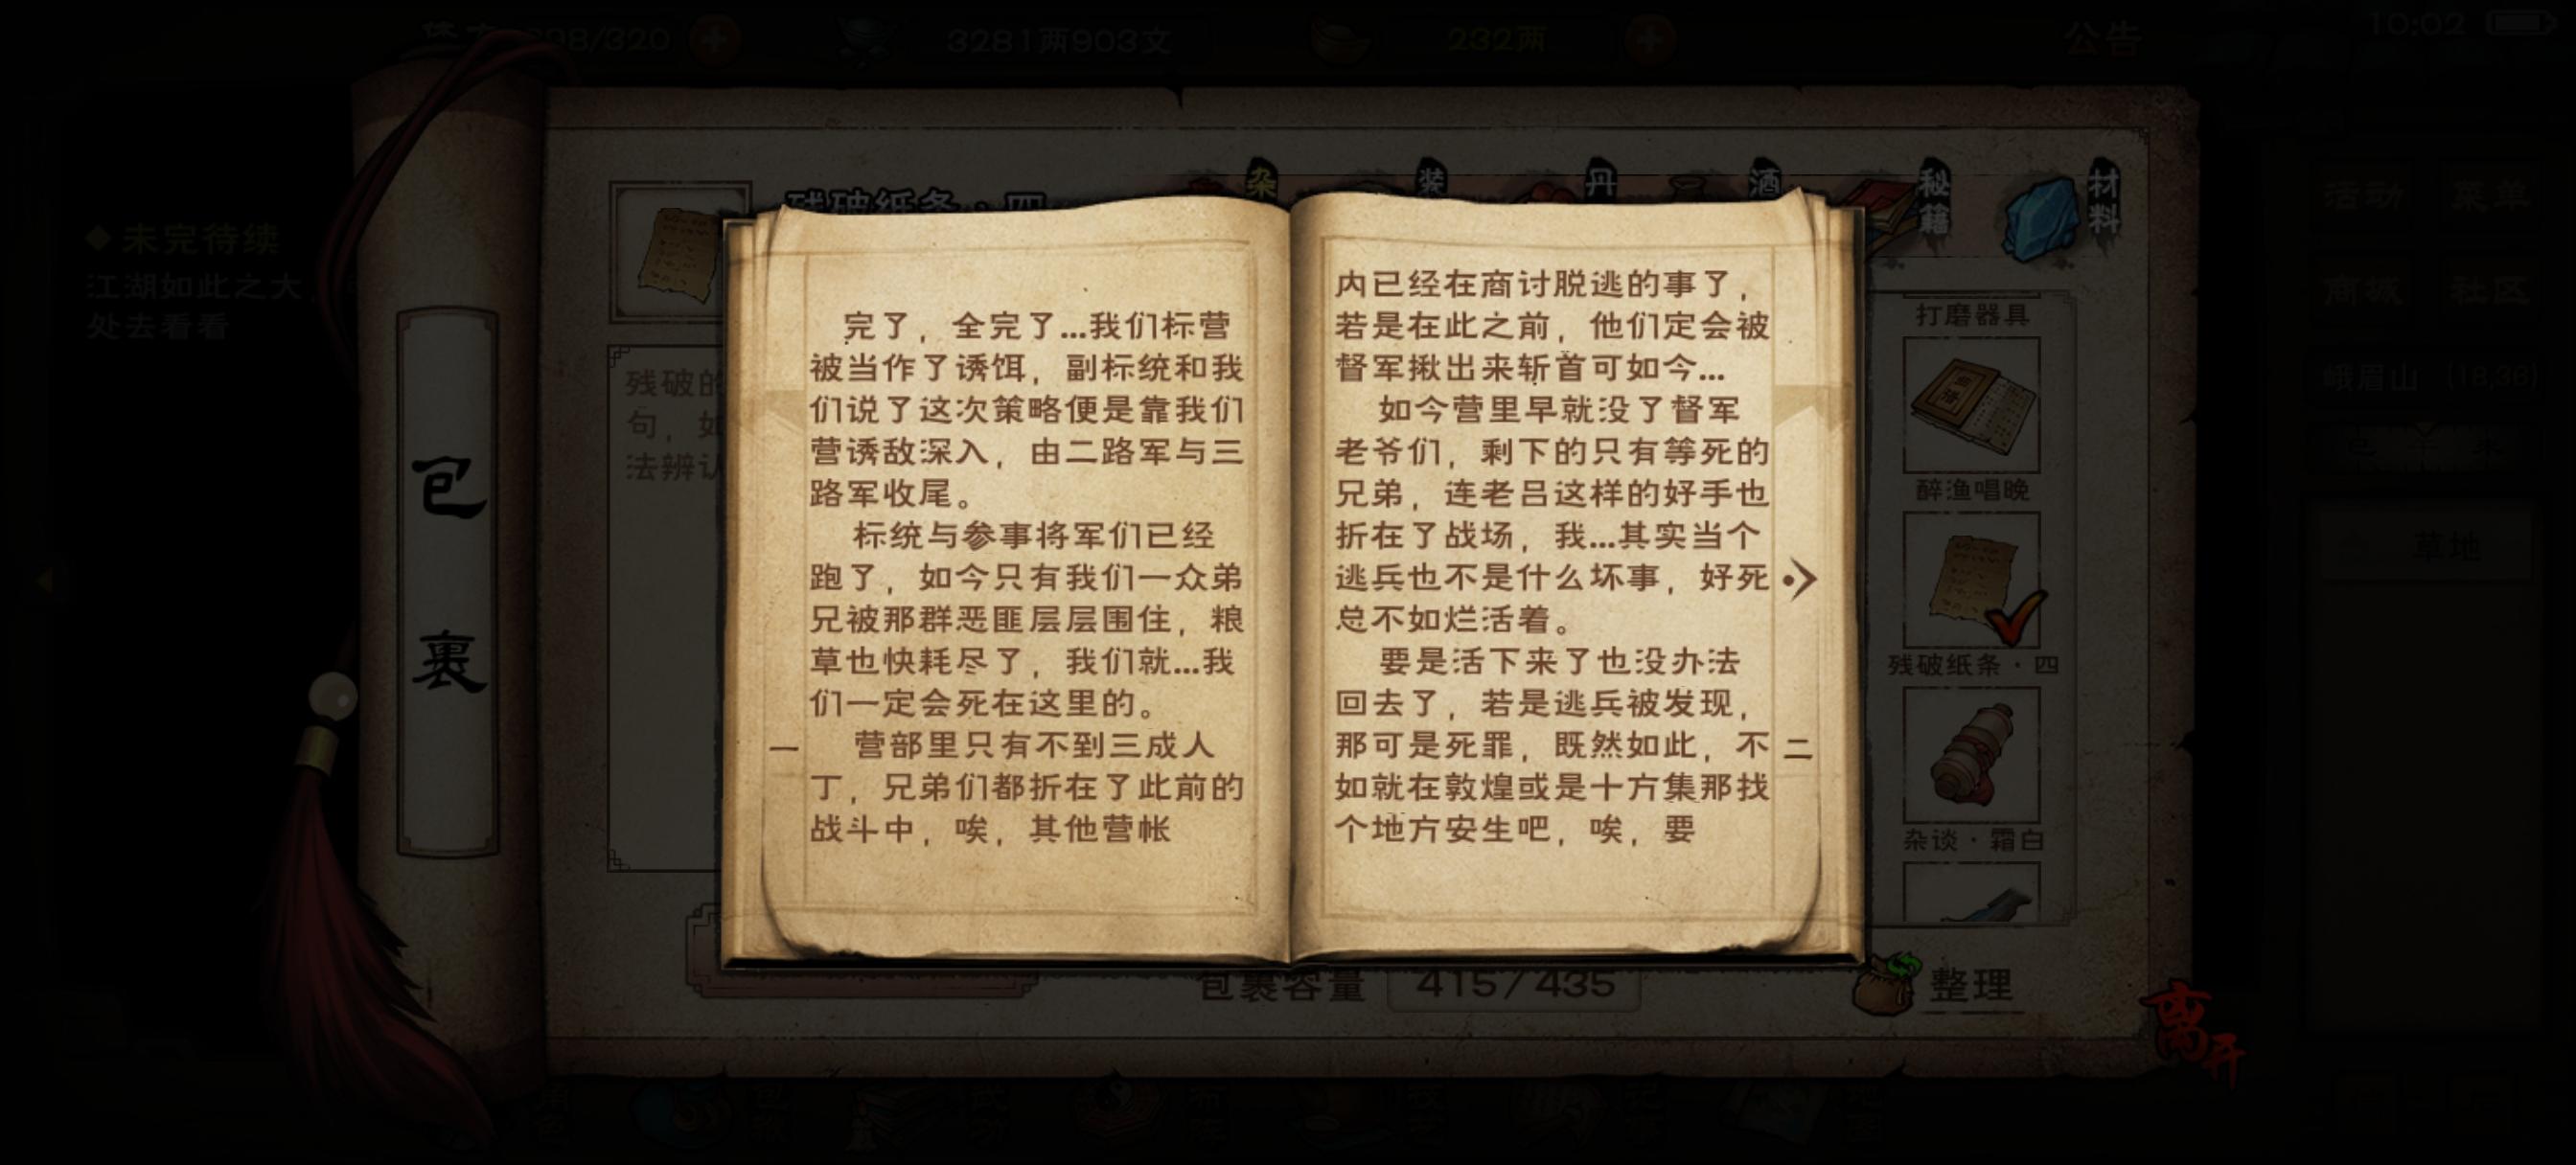 298/320
3281两903文
232两
公告
10:02
未完待续
江湖如此之大，
处去看看
包裹
残破纸条·四
杂
装
丹
酒
秘籍
材料
残破的
句，如
法辨认
完了，全完了...我们标营
被当作了诱饵，副标统和我
们说了这次策略便是靠我们
营诱敌深入，由二路军与三
路军收尾。
标统与参事将军们已经
跑了，如今只有我们一众弟
兄被那群恶匪层层围住，粮
草也快耗尽了，我们就...我
们一定会死在这里的。
营部里只有不到三成人
丁，兄弟们都折在了此前的
战斗中，唉，其他营帐
一
内已经在商讨脱逃的事了，
若是在此之前，他们定会被
督军揪出来斩首可如今...
如今营里早就没了督军
老爷们，剩下的只有等死的
兄弟，连老吕这样的好手也
折在了战场，我...其实当个
逃兵也不是什么坏事，好死
总不如烂活着。
要是活下来了也没办法
回去了，若是逃兵被发现，
那可是死罪，既然如此，不
如就在敦煌或是十方集那找
个地方安生吧，唉，要
二
打磨器具
醉渔唱晚
残破纸条·四
杂谈·霜白
包裹容量
415/435
整理
离开
活动
菜单
商城
社区
峨眉山 (18,36)
草地